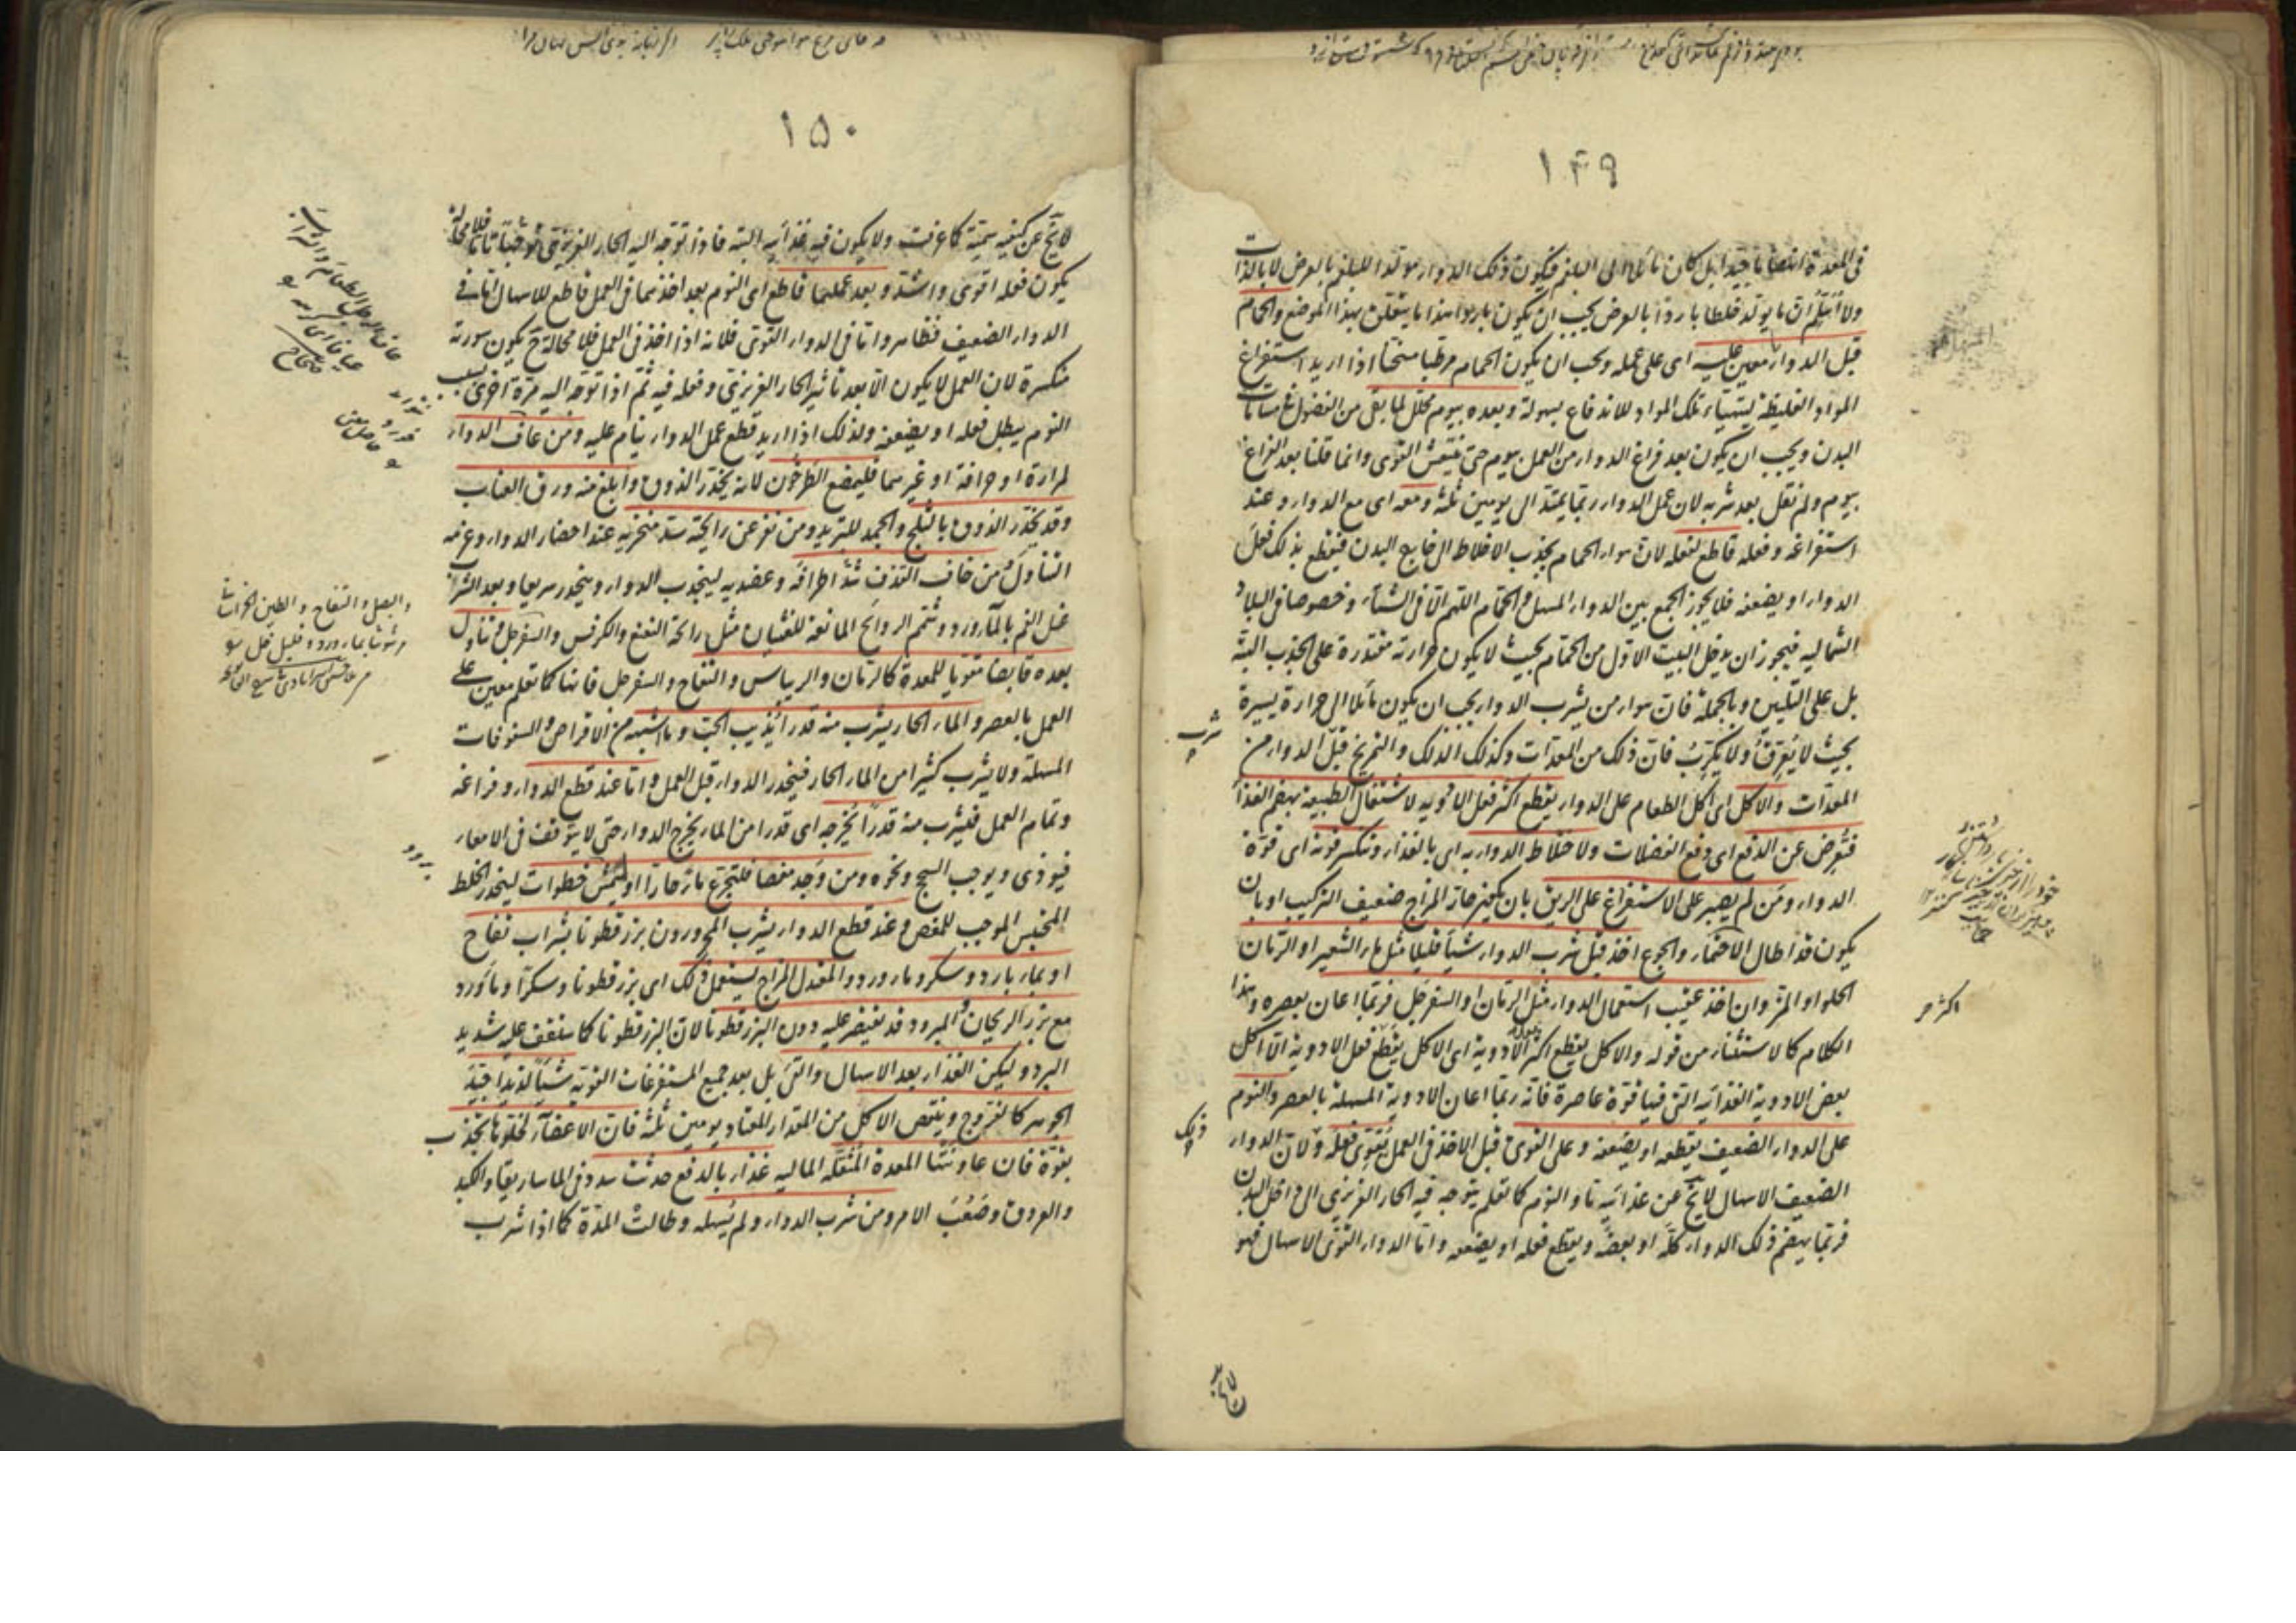 ١٤٩
في المعدة انهضاما جيدا بل كان مائلا الى البلغم فيكون ذلك الدواء مولدا للبلغم بالعرض لا بالذات
ان ما يولد خلطا باردا بالعرض يجب ان يكون باردا هذا ما يتعلق بهذا الموضع والحمام
قبل الدواء معين عليه اى على عمله ويجب ان يكون الحمام مرطبا مسخنا اذا اريد استفراغ
المواد الغليظة ليتهيأ تلك المواد للاندفاع بسهولة وبعده بيوم محلل لما بقى من الفضول في مسامات
البدن ويجب ان يكون بعد فراغ الدواء من العمل بيوم حتى تنتعش القوى وانما قلنا بعد الفراغ
بيوم ولم نقل بعد شربه لان عمل الدواء ربما يمتد الى يومين ثلثة ومعه اى مع الدواء وعند
استفراغه وفعله قاطع لفعله لان هواء الحمام يجذب الاخلاط الى خارج البدن فيقطع بذلك فعل
الدواء او يضعفه فلا يجوز الجمع بين الدواء المسهل والحمام اللهم الا في الشتاء وخصوصا في البلاد
الشماليه فيجوز ان يدخل البيت الاول من الحمام بحيث لا يكون حرارته مقتدرة على الجذب البتة
بل على التليين وبالجملة فان هواء من يشرب الدواء يجب ان يكون مائلا الى حرارة يسيرة
بحيث لا يعرق ولا يكرب فان ذلك من المعدات وكذلك الدلك والتمريخ قبل الدواء من
المعدات والاكل اى اكل الطعام على الدواء يقطع اكثر فعل الادويه لاشتغال الطبيعة بهضم الغذاء
فتعرض عن الدفع اى دفع الفضلات ولاختلاط الدواء به اى بالغذاء وتنكسر قوته اى قوة
الدواء ومن لم يصبر على الاستفراغ على الريق بان يكون حار المزاج ضعيف التركيب او بان
يكون قد اطال الاحتماء والجوع اخذ قبل شرب الدواء شيأ قليلا مثل ماء الشعير او الرمان
الحلو او المز وان اخذ عقيب استعمال الدواء مثل الرمان او السفرجل فربما اعان بعصره وهذا
الكلام كالاستثناء من قوله والاكل يقطع اكثر الادوية اى الاكل يقطع فعل الادوية الا اكل
بعض الادوية الغذائيه التى فيها قوة عاصرة فانه ربما اعان الادوية المسهلة بالعصر والنوم
على الدواء الضعيف يقطعه او يضعفه وعلى القوى قبل الاخذ في العمل يقوى فعله ولان الدواء
الضعيف الاسهال لا يخ عن غذائيه ما والنوم كما تعلم يتوجه فيه الحار الغريزى الى داخل البدن
فربما يهضم ذلك الدواء كله او بعضه ويقطع فعله او يضعفه واما الدواء القوى الاسهال فهو
شرب
اكثر
١٥٠
لا يخ عن كيفيه سمية كما عرفت ولا يكون فيه غذائيه البتة فاذا توجه اليه الحار الغريزى
يكون فعله اقوى واشد وبعد عملهما قاطع اى النوم بعد اخذهما في العمل قاطع للاسهال اما في
الدواء الضعيف فظاهر واما في الدواء القوى فلانه اذا اخذ في العمل فلا محالة ح يكون سورته
منكسرة لان العمل لا يكون الا بعد تأثير الحار الغريزى وفعله فيه ثم اذا توجه اليه مرة اخرى بسبب
النوم يبطل فعله او يضعفه ولذلك اذا اريد قطع عمل الدواء ينام عليه ومن عاف الدواء
لمرارة او حرافة او غيرهما فليمضغ الطرخون لانه يخدر الذوق وابلغ منه ورق العناب
وقد يخدر الذوق بالثلج والجمد للتبريد ومن نفر عن رايحته سد منخريه عند احضار الدواء
التناول ومن خاف القذف شد اطرافه وعضديه لينجذب الدواء وينحدر سريعا وبعد الشرب
غسل الفم بالماورد وشم الروائح المانعة للغثيان مثل رائحة النعنع والكرفس والسفرجل
بعده قابضا مقويا للمعدة كالرمان والريباس والتفاح والسفرجل فانها كما تعلم معين على
العمل بالعصر والماء الحار يشرب منه قدر ما يذيب الحب وما اشبهه من الاقراص والسفوفات
المسهلة ولا يشرب كثيرا من الماء الحار فينحدر الدواء قبل العمل واما عند قطع الدواء وفراغه
وتمام العمل فليشرب منه قدرا يخرجه اى قدرا من الماء يخرج الدواء حتى لا يتوقف في الامعاء
فيوذى ويوجب السحج ونحوه ومن وجد مغصا فليتجرع ماء حارا او ليتمش خطوات لينحدر الخلط
المحتبس الموجب للمغص وعند قطع الدواء يشرب المحرورون بزر قطونا بشراب تفاح
او بماء بارد وسكر وماء ورد والمعتدل المزاج يستعمل ذلك اى بزر قطونا وسكرا وماورد
مع بزر الريحان والمبرود قد يقتصر عليه دون البزر قطونا لان البزر قطونا كما ستقف عليه شديد
البرد وليكن الغذاء بعد الاسهال والقئ بل بعد جميع المستفرغات القوية شيأ لذيذا جيد
الجوهر كالفروج وينقص الاكل من المقدار المعتاد يومين ثلثة فان الاعضاء لخلوها تجذب
بقوة فان عاونتها المعدة المثقلة الماليه غذاء بالدفع حدث سدد في الماساريقا والكبد
والعروق وصعب الامر ومن شرب الدواء ولم يسهله وطالت المدة كما اذا شرب